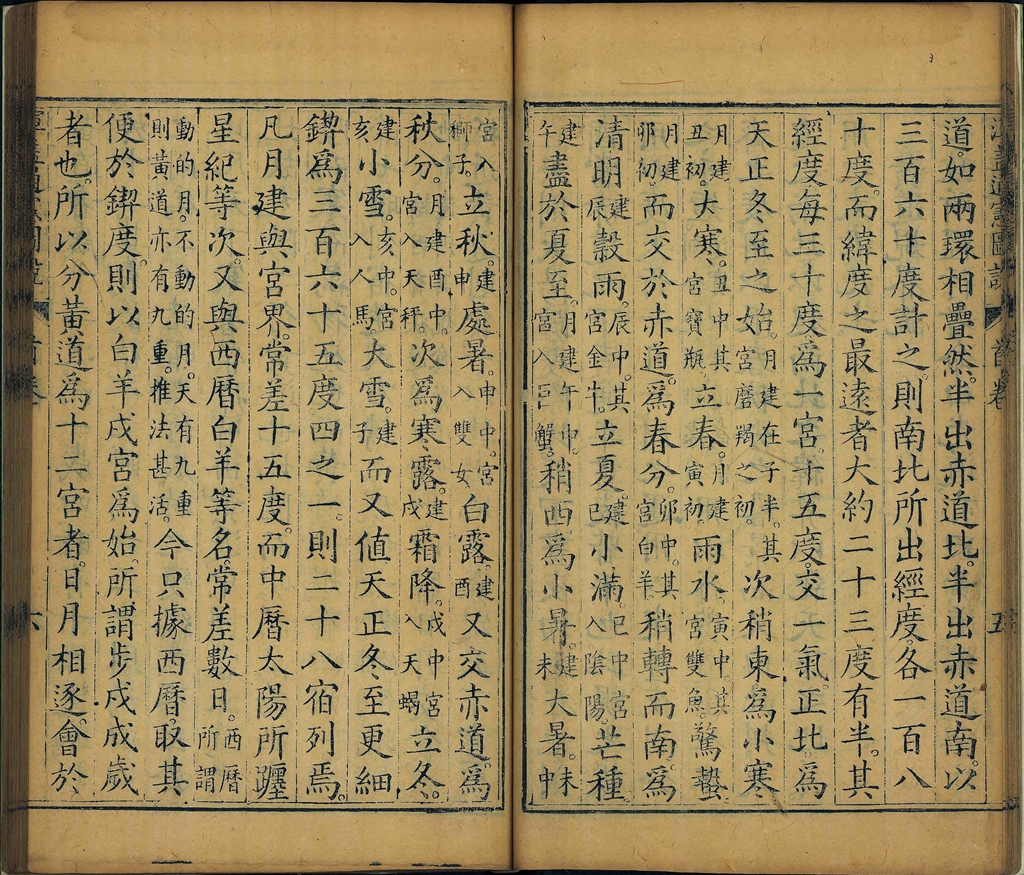 渾蓋通憲圖說 首卷 五
道。如兩環相疊然。半出赤道北。半出赤道南。以
三百六十度計之。則南北所出經度各一百八
十度。而緯度之最遠者大約二十三度有半。其
經度每三十度爲一宮。十五度交一氣。正北爲
天正冬至之始。月建在子半。其宮磨羯之初。次稍東爲小寒
月建丑初。大寒。丑中。其宮寳瓶。立春。月建寅初。雨水。寅中。其宮雙魚。驚蟄
月建卯初。而交於赤道。爲春分。卯中。其宮白羊。稍轉而南。爲
清明。建辰穀雨。辰中。其宮金牛。立夏。建巳小滿。巳中宮入陰陽。芒種
建午盡於夏至。月建午中。宮入巨蟹。稍西。爲小暑。建未大暑。未中
宮入獅子。立秋。建申處暑。申中宮入雙女白露。建酉又交赤道。爲
秋分。月建酉中。宮入天秤。次爲寒露。建戌霜降。戌中宮入天蝎立冬。
建亥小雪。亥中宮入人馬大雪。建子而又値天正冬至更細
鍥爲三百六十五度四之一。則二十八宿列焉。
凡月建與宮界。常差十五度。而中曆太陽所躔
星紀等次。又與西曆白羊等名。常差數日。西曆所謂
動的月。不動的月。天有九重則黃道亦有九重。推法甚活。今只據西曆。取其
便於鍥度。則以白羊戌宮爲始。所謂步戌成歲
者也。所以分黃道爲十二宮者。日月相逐。會於